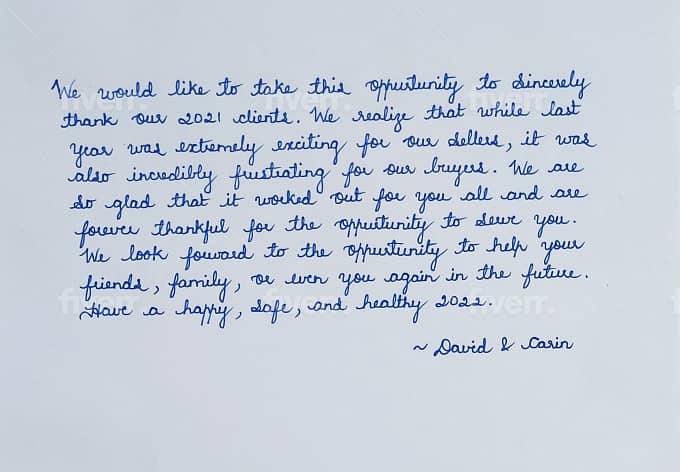 We would like to take this oppurtunity to sincerely
thank our 2021 clients. We realize that while last
year was extremely exciting for our sellers, it was
also incredibly frustrating for our buyers. We are
so glad that it worked out for you all and are
forever thankful for the oppurtunity to serve you.
We look forward to the oppurtunity to help your
friends, family, or even you again in the future.
Have a happy, safe, and healthy 2022.
~ David & Carin
fiverr.
fiverr.
fiverr.
fiverr.
fiverr.
fiverr.